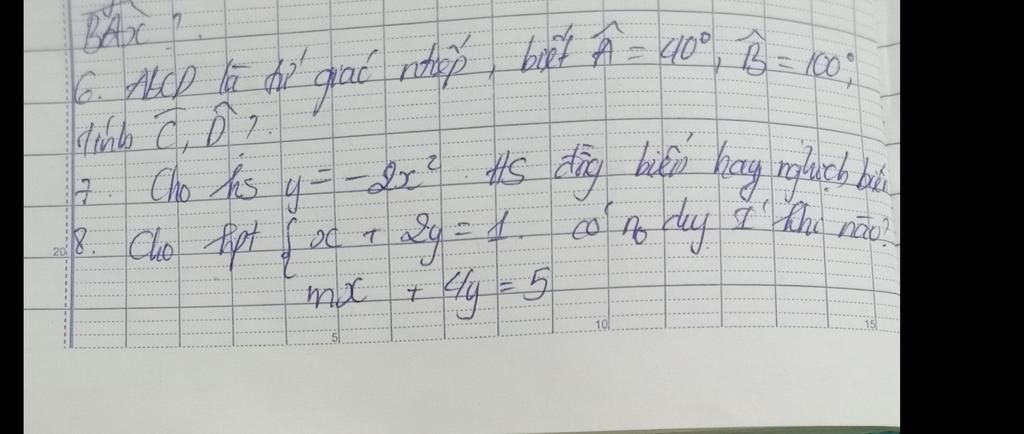 BAx ?.
6. ABCD là tứ giác nhiếp, biết Â = 40°, B̂ = 100°,
tính Ĉ, D̂ ?.
7. Cho hs y = -2x². HS đồg biến hay nghịch biến
20 8. Cho hpt { x + 2y = 1. có n₀ duy I' khi nào?
mx + 4y = 5
5 10 15